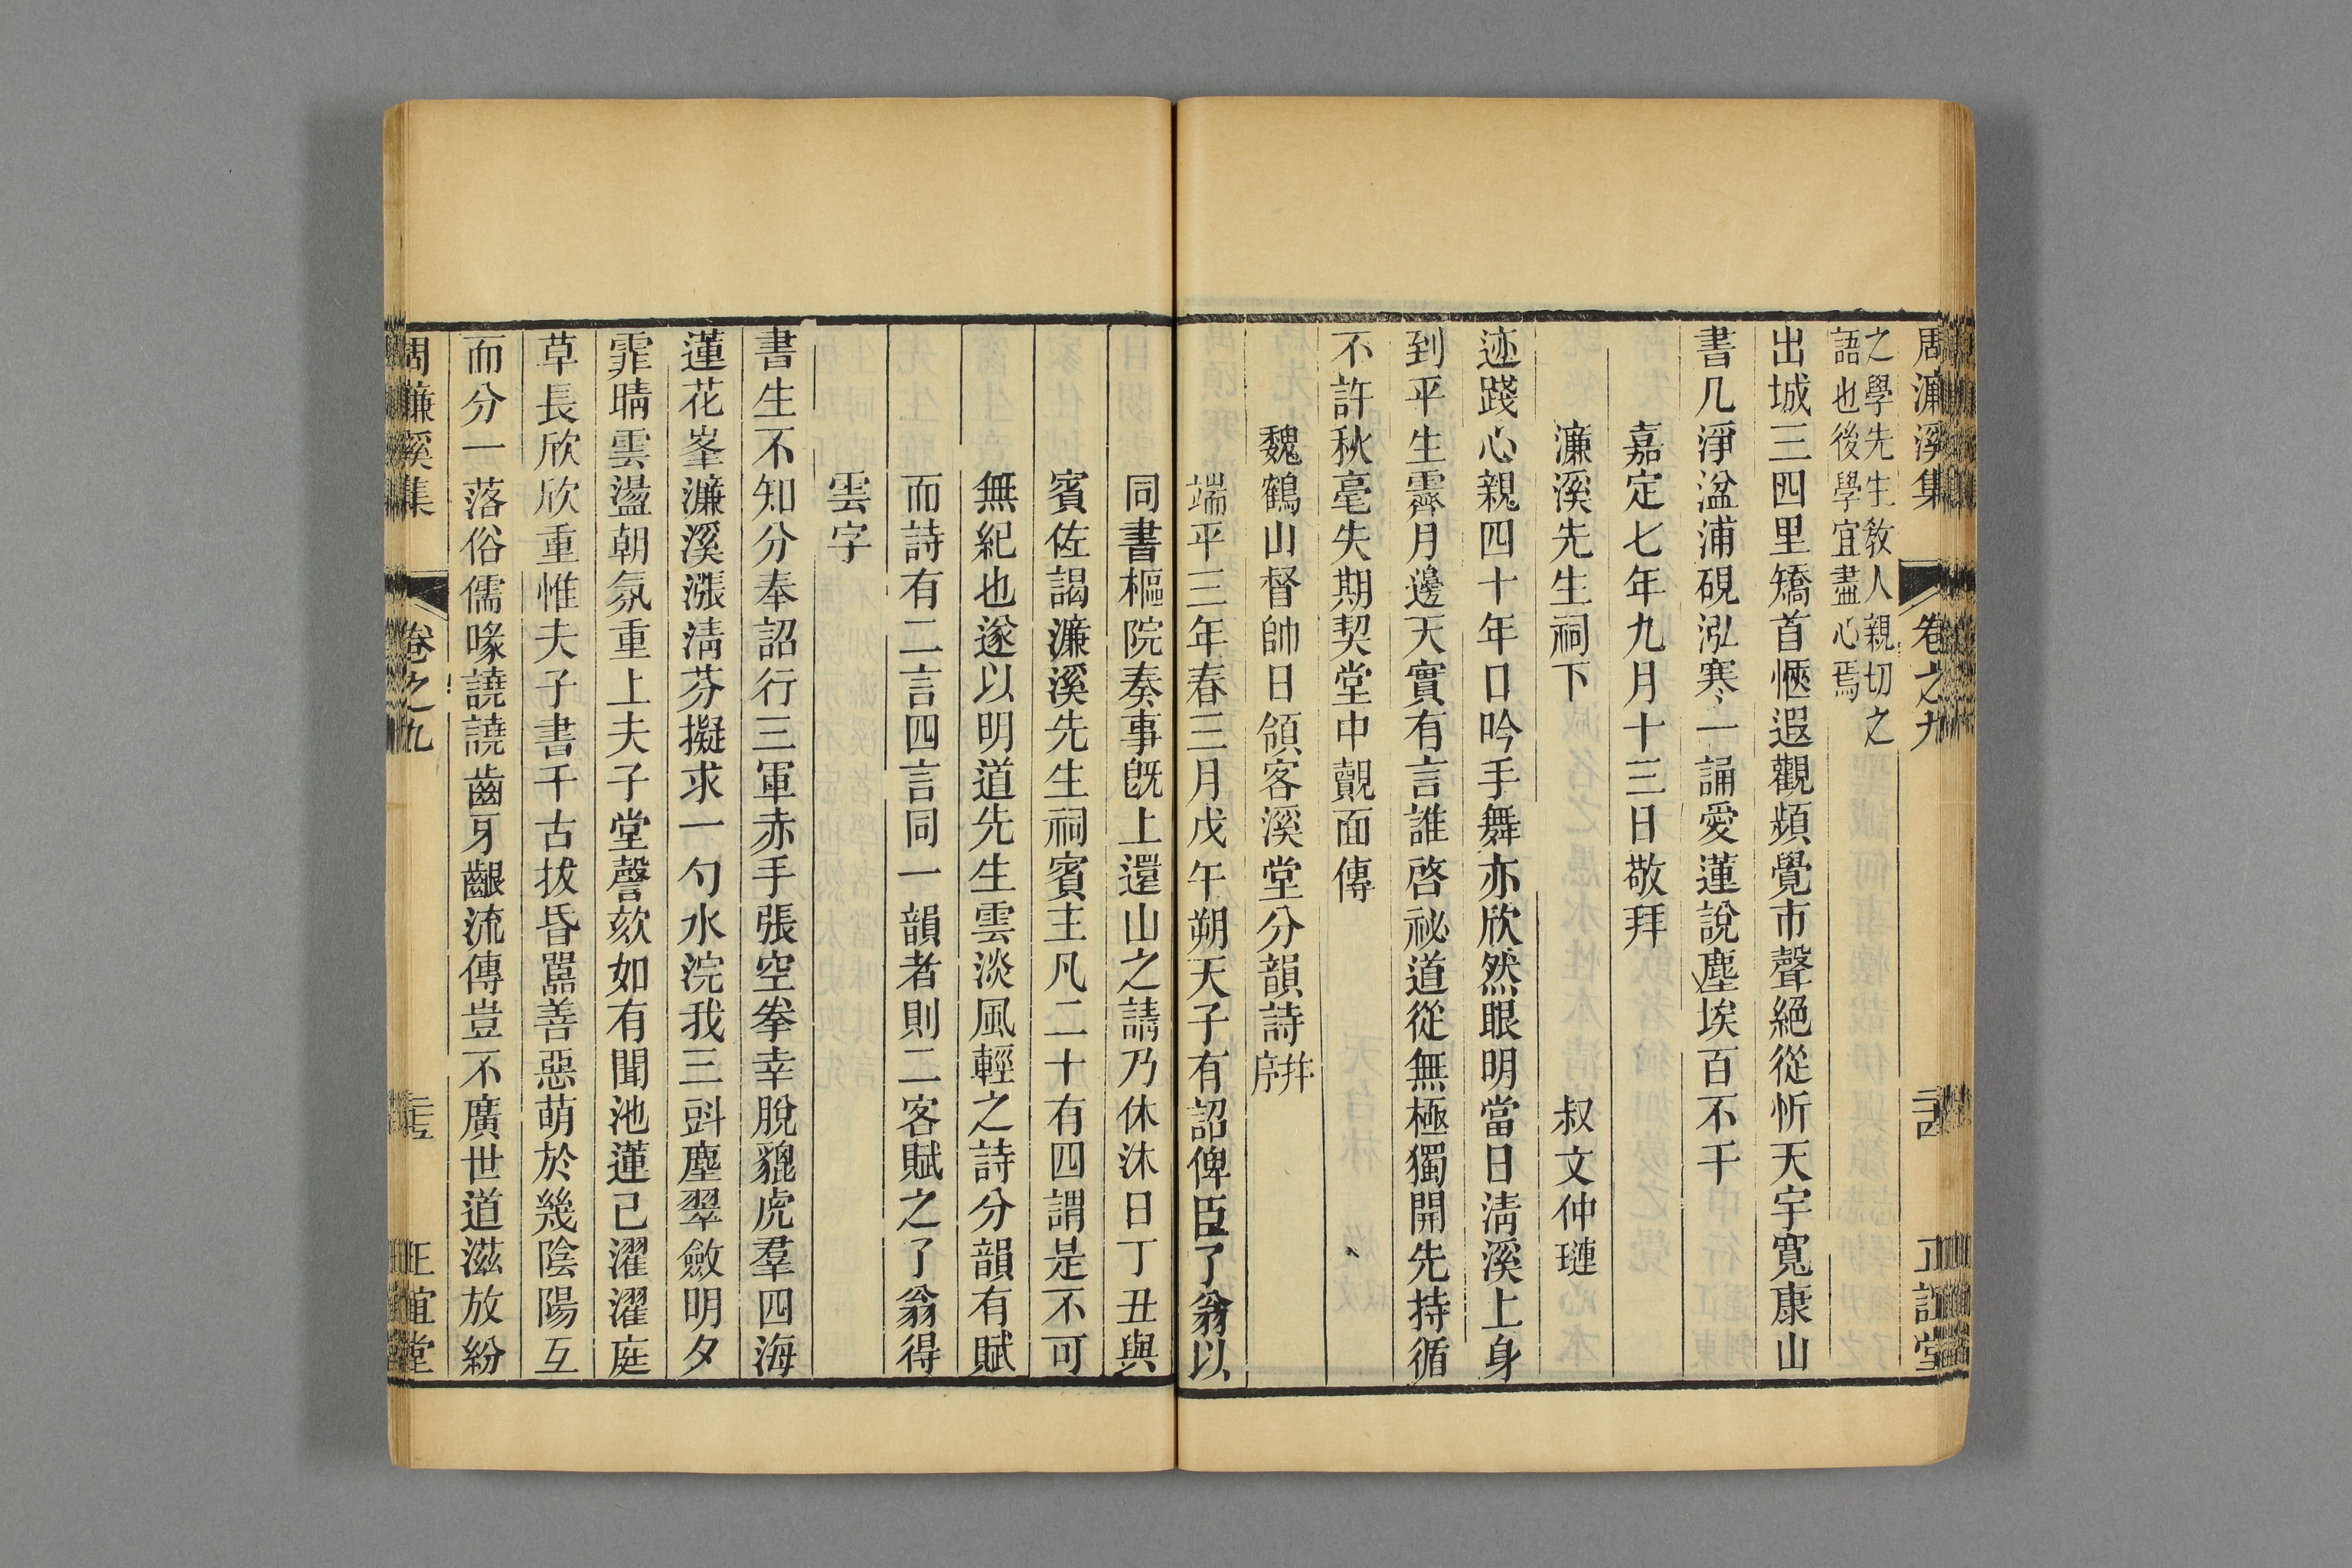 周濂溪集 卷之九
之學先生敎人親切之
語也後學宜盡心焉
出城三四里矯首愜遐觀頻覺市聲絕從忻天宇寬康山
書几淨湓浦硯泓寒一誦愛蓮說塵埃百不干
嘉定七年九月十三日敬拜
濂溪先生祠下 叔文仲璉
迹踐心親四十年口吟手舞亦欣然眼明當日淸溪上身
到平生霽月邊天實有言誰啓祕道從無極獨開先持循
不許秋毫失期契堂中覿面傳
魏鶴山督帥日領客溪堂分韻詩幷序
端平三年春三月戊午朔天子有詔俾臣了翁以
同書樞院奏事旣上還山之請乃休沐日丁丑與
賓佐謁濂溪先生祠賓主凡二十有四謂是不可
無紀也遂以明道先生雲淡風輕之詩分韻有賦
而詩有二言四言同一韻者則二客賦之了翁得
雲字
書生不知分奉詔行三軍赤手張空拳幸脫貔虎羣四海
蓮花峯濂溪漲淸芬擬求一勺水浣我三㪷塵翠斂明夕
霏晴雲盪朝氛重上夫子堂謦欬如有聞池蓮已濯濯庭
草長欣欣重惟夫子書千古拔昏嚚善惡萌於幾陰陽互
而分一落俗儒喙譊譊齒牙齦流傳豈不廣世道滋放紛
周濂溪集 卷之九 正誼堂